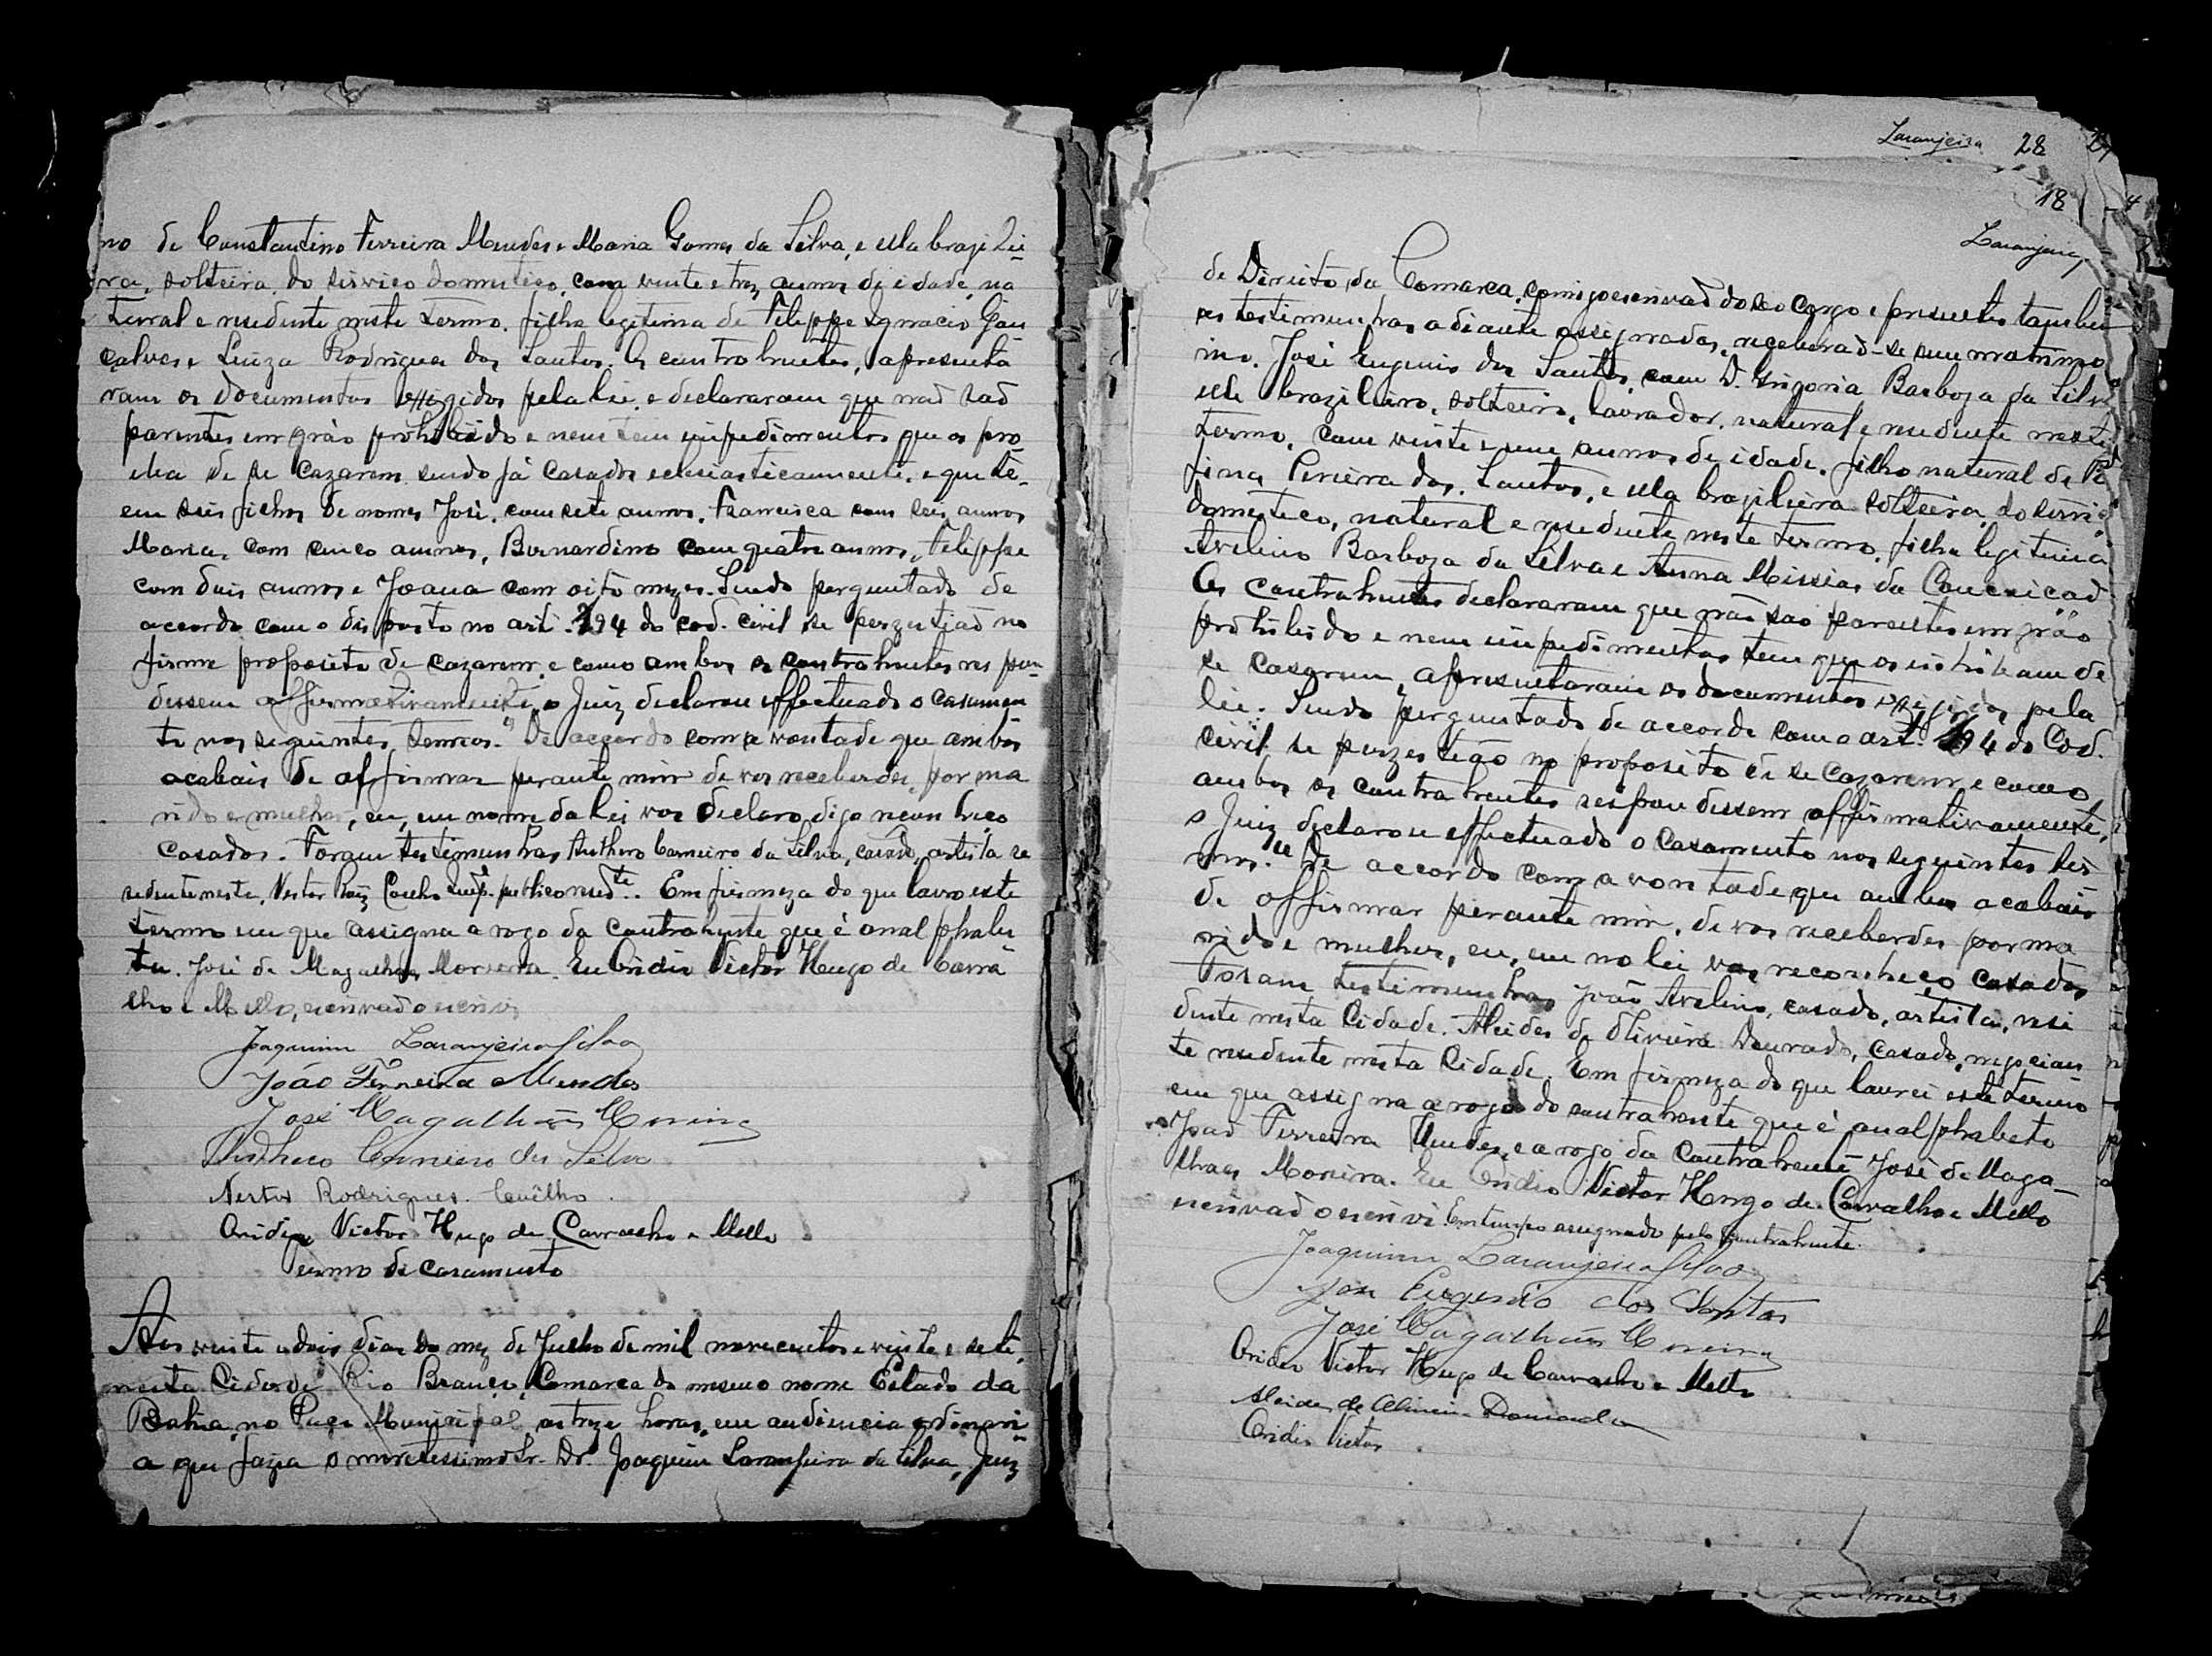 no de Constantino Ferreira Mendes e Maria Gomes da Silva, e ella brazilei
ra, solteira, do serviço domestico, com vinte e trez annos de idade, na
tural e residente neste termo, filha legitima de Felippe Ignacio Gon
çalves e Luiza Rodrigues dos Santos. Os contrahentes, apresenta
ram os documentos exigidos pela lei, e declararam que não são
parentes em gráo prohibido e nem tem impedimentos que os pro
hba de se cazarem sendo já casados eclesiasticamente, e que te
em seis filhos de nomes José, com sete annos, Francisca com seis annos
Maria, com cinco annos, Bernardino com quatro annos, Felippe
com dois annos e Joana com oito mezes. Sendo perguntado de
accordo com o disposto no art. 194 do cod. civil se persistião no
firme proposito de cazarem, e como ambos os contrahentes respon
dessem affirmativamente, o Juiz declarou effectuado o casamen
to nos seguintes termos. "De accordo com a vontade que ambos
acabais de affirmar perante mim de vos receberdes, por ma
rido e mulher, eu, em nome da lei vos declaro, digo reconheço
casados. Foram testemunhas Anthero Carneiro da Silva, casado, artista re
sidente nesta, Nestor Roiz Coelho Emp. publico resid.te. Em firmeza do que lavro este
termo em que assigna a rogo da contrahente que é analphabe
ta. José de Magalhães Moreira. Eu Ovidio Victor Hugo de Carva
lho e Mello, escrivão o escrevi
Joaquim Laranjeira Silva
João Ferreira Mendes
José Magalhães Moreira
Anthero Carneiro da Silva
Nestor Rodrigues Coêlho
Ovidio Victor Hugo de Carvalho e Mello
Termo de casamento
Aos vinte e dois dias do mez de Julho de mil novecentos e vinte e sete,
nesta Cidade Rio Branco, Comarca do mesmo nome Estado da
Bahia, no Paço Municipal as treze horas, em audiencia ordinari
a que fazia o meretissimo Sr. Dr. Joaquim Laranjeira da Silva, Juiz
Laranjeira 28
18
Laranjeira
de Direito da Comarca, comigo escrivão do seo cargo e presentes tambem
as testimunhas adiante assignadas, receberão-se em matrimo
nio. José Eugenio dos Santos, com D. Gregoria Barboza da Silva
elle brazileiro, solteiro, lavrador, natural e residente neste
termo, com vinte e um annos de idade, filho natural de
Pereira dos Santos, e ella brazileira solteira, do servi
domestico, natural e residente neste termo, filha legitima
Avelino Barboza da Silva e Anna Missias da Conceicão
Os contrahentes declararam que não são parentes em gráo
prohibido e nem impedimentos tem que os inhibam de
se casarem, apresentaram os documentos exigidos pela
lei. Sendo perguntado de accordo com o art. 194 do Cod.
civil se persestião no proposito de se cazarem e como
ambos os contrahentes respondessem affirmativamente,
o Juiz declarou effectuado o casamento nos seguintes ter
mos. "De accordo com a vontade que ambos acabais
de affirmar perante mim, de vos receberdes por ma
rido e mulher, eu, em no lei vos reconheço casados
Foram testimunhas João Avelino, casado, artista, resi
dente nesta Cidade. Alcides de Oliveira Dourado, casado, negocian
te residente nesta Cidade. Em firmeza do que lavrei este termo
em que assigna a rogo do contrahente que é analphabeto
João Ferreira Mendes, e a rogo da contrahente José de Maga
lhães Moreira. Eu Ovidio Victor Hugo de Carvalho e Mello
escrivão o escrevi. Em tempo assignado pelo contrahente.
Joaquim Laranjeira Silva
José Eugenio dos Santos
José Magalhães Moreira
Ovidio Victor Hugo de Carvalho e Mello
Alcides de Oliveira Dourado
Ovidio Victor